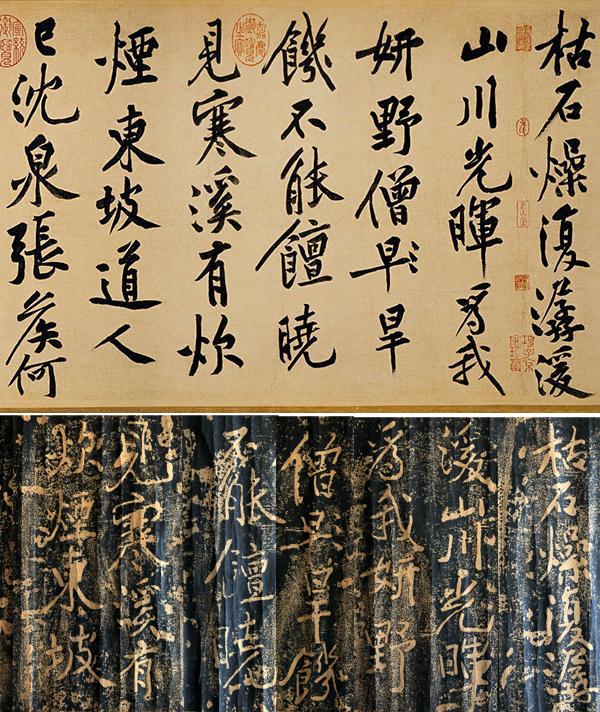 枯石燥復潺湲
山川光暉爲我
妍野僧早旱
饑不能饘曉
見寒溪有炊
煙東坡道人
已沈泉張侯何
枯石燥復潺
湲山川光暉
爲我妍野
僧早旱饑
不能饘曉
見寒溪有
炊煙東坡